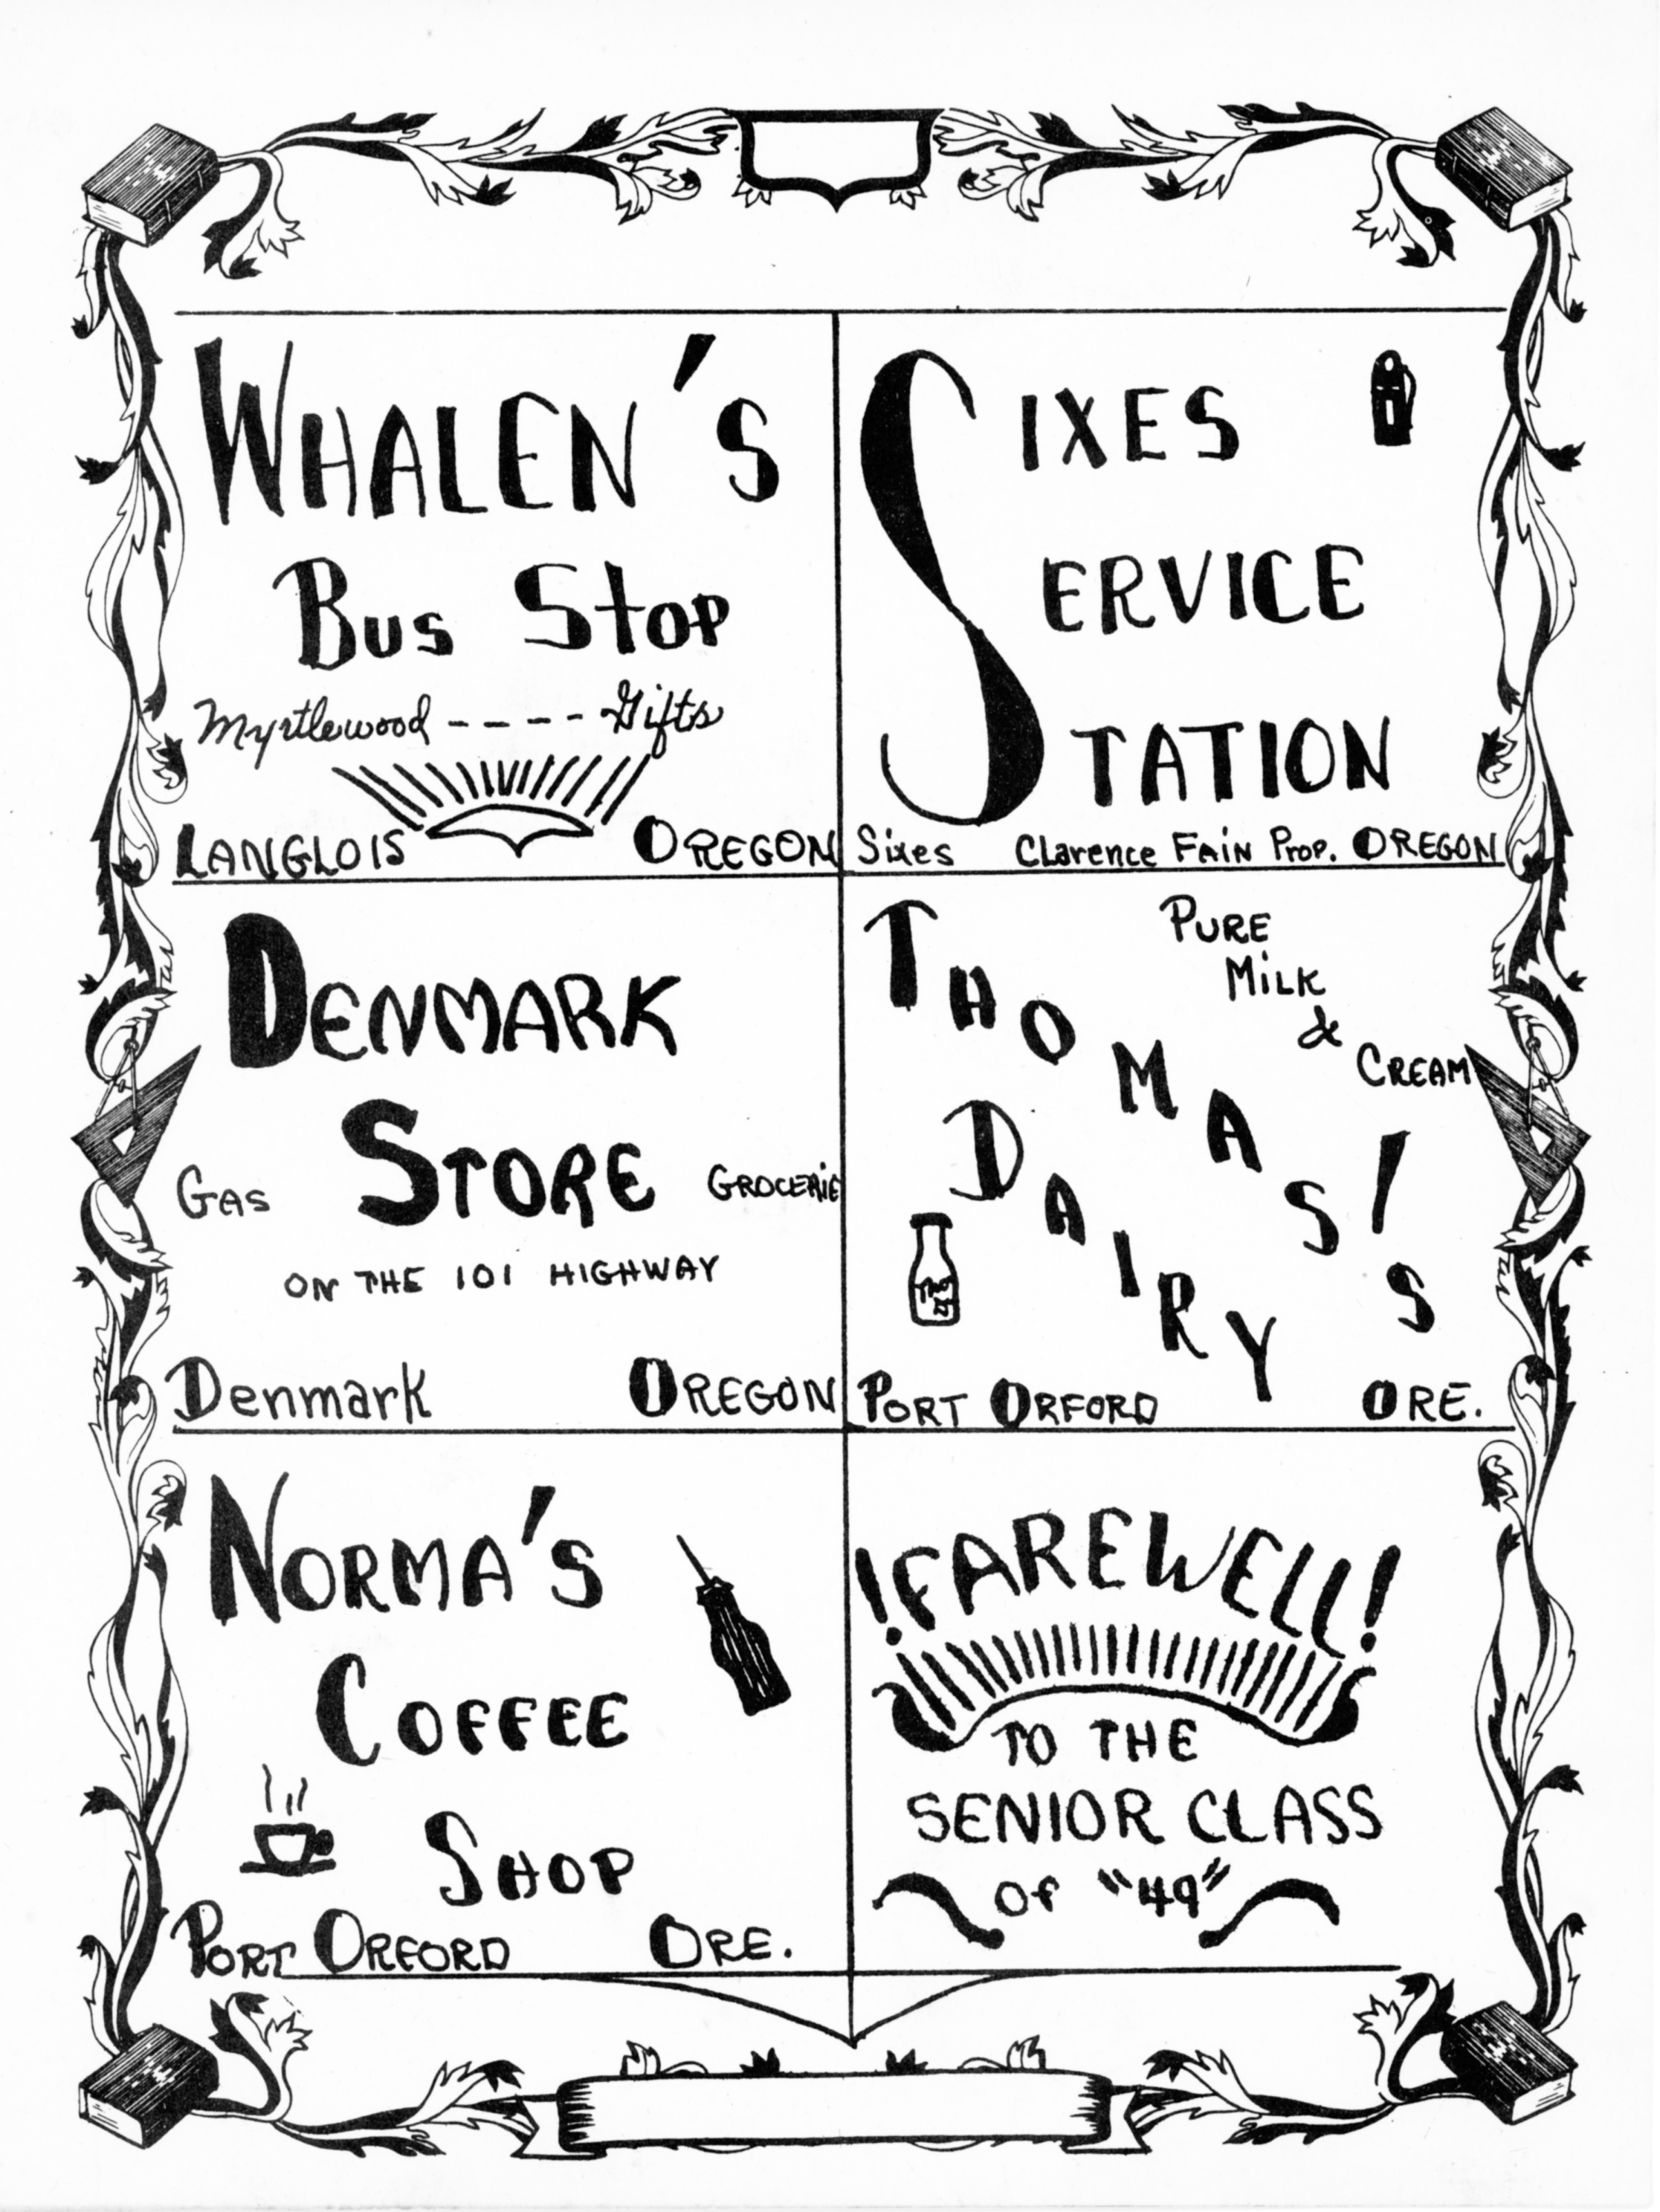 WHALEN'S
BUS STOP
Myrtlewood ---- Gifts
LANGLOIS OREGON
SIXES
SERVICE
STATION
Sixes Clarence FAIN Prop. OREGON
DENMARK
STORE
GAS GROCERIE
ON THE 101 HIGHWAY
Denmark OREGON
THOMAS'S
DAIRY
PURE
MILK
&
CREAM
PORT ORFORD ORE.
NORMA'S
COFFEE
SHOP
PORT ORFORD ORE.
!FAREWELL!
TO THE
SENIOR CLASS
OF "49"